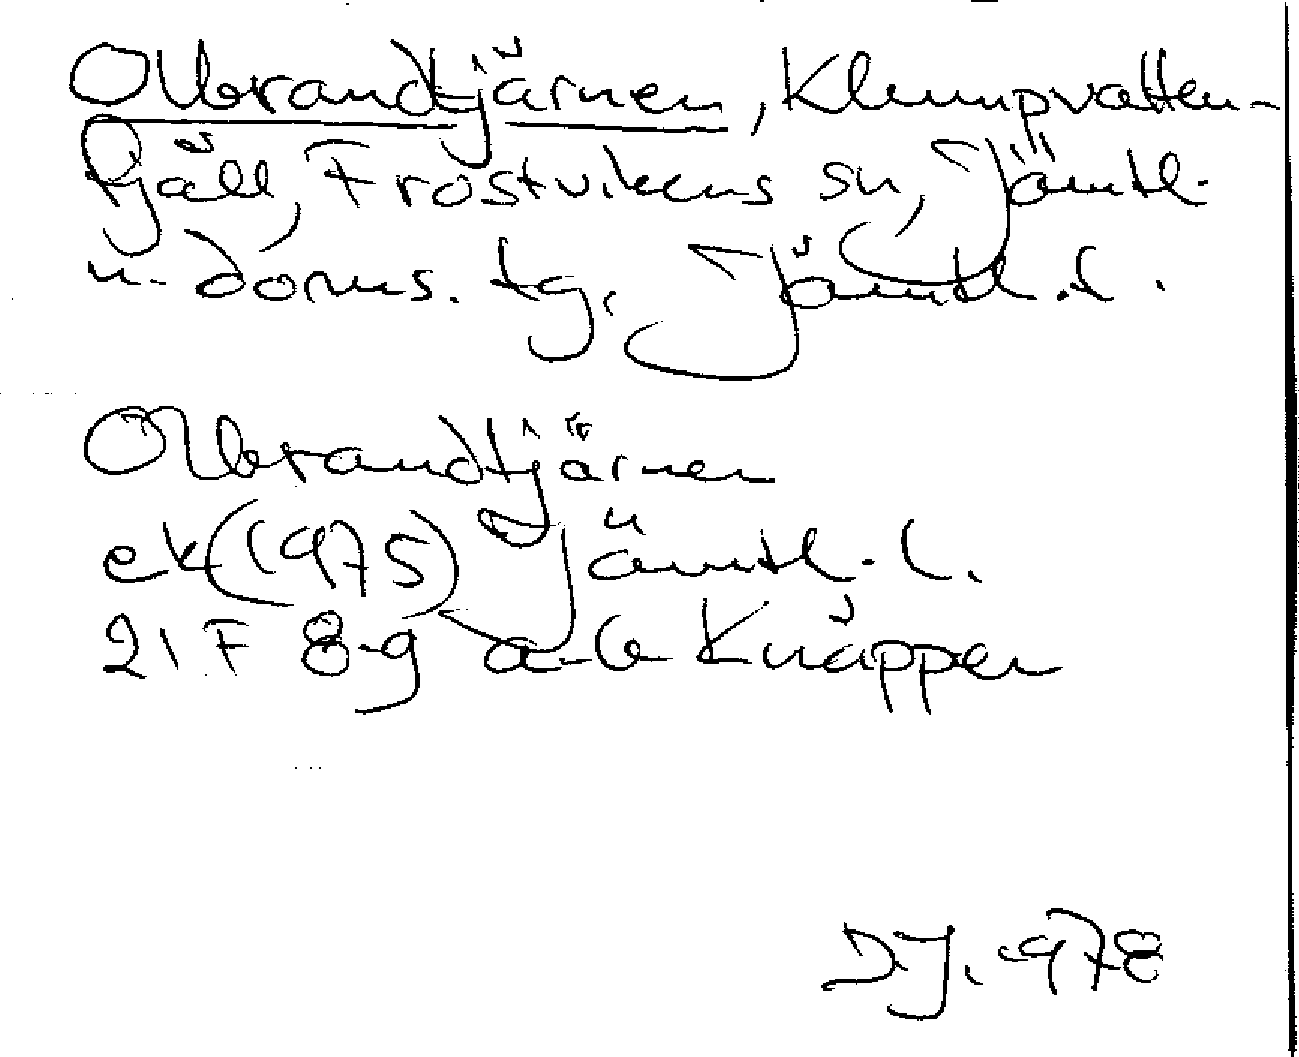 Olbrandtjärnen, Klumpvatten-
fjäll, Frostvikens sn, Jämtl.
n. doms. tg, Jämtl. l.
Olbrandtjärnen
ek (1975) Jämtl. l.
21 F 8-g a-b Knäppen
DJ. 1978